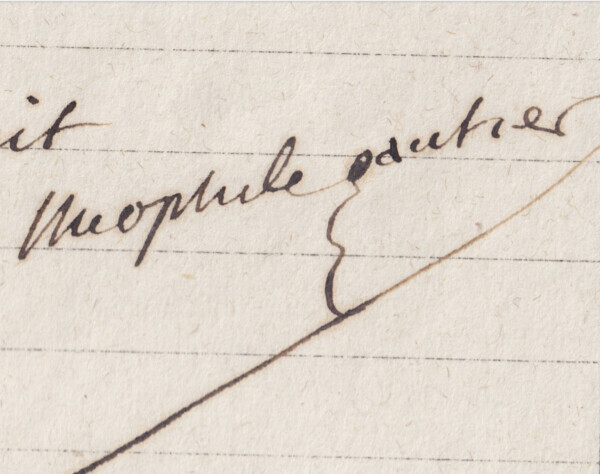 it
theophile gautier